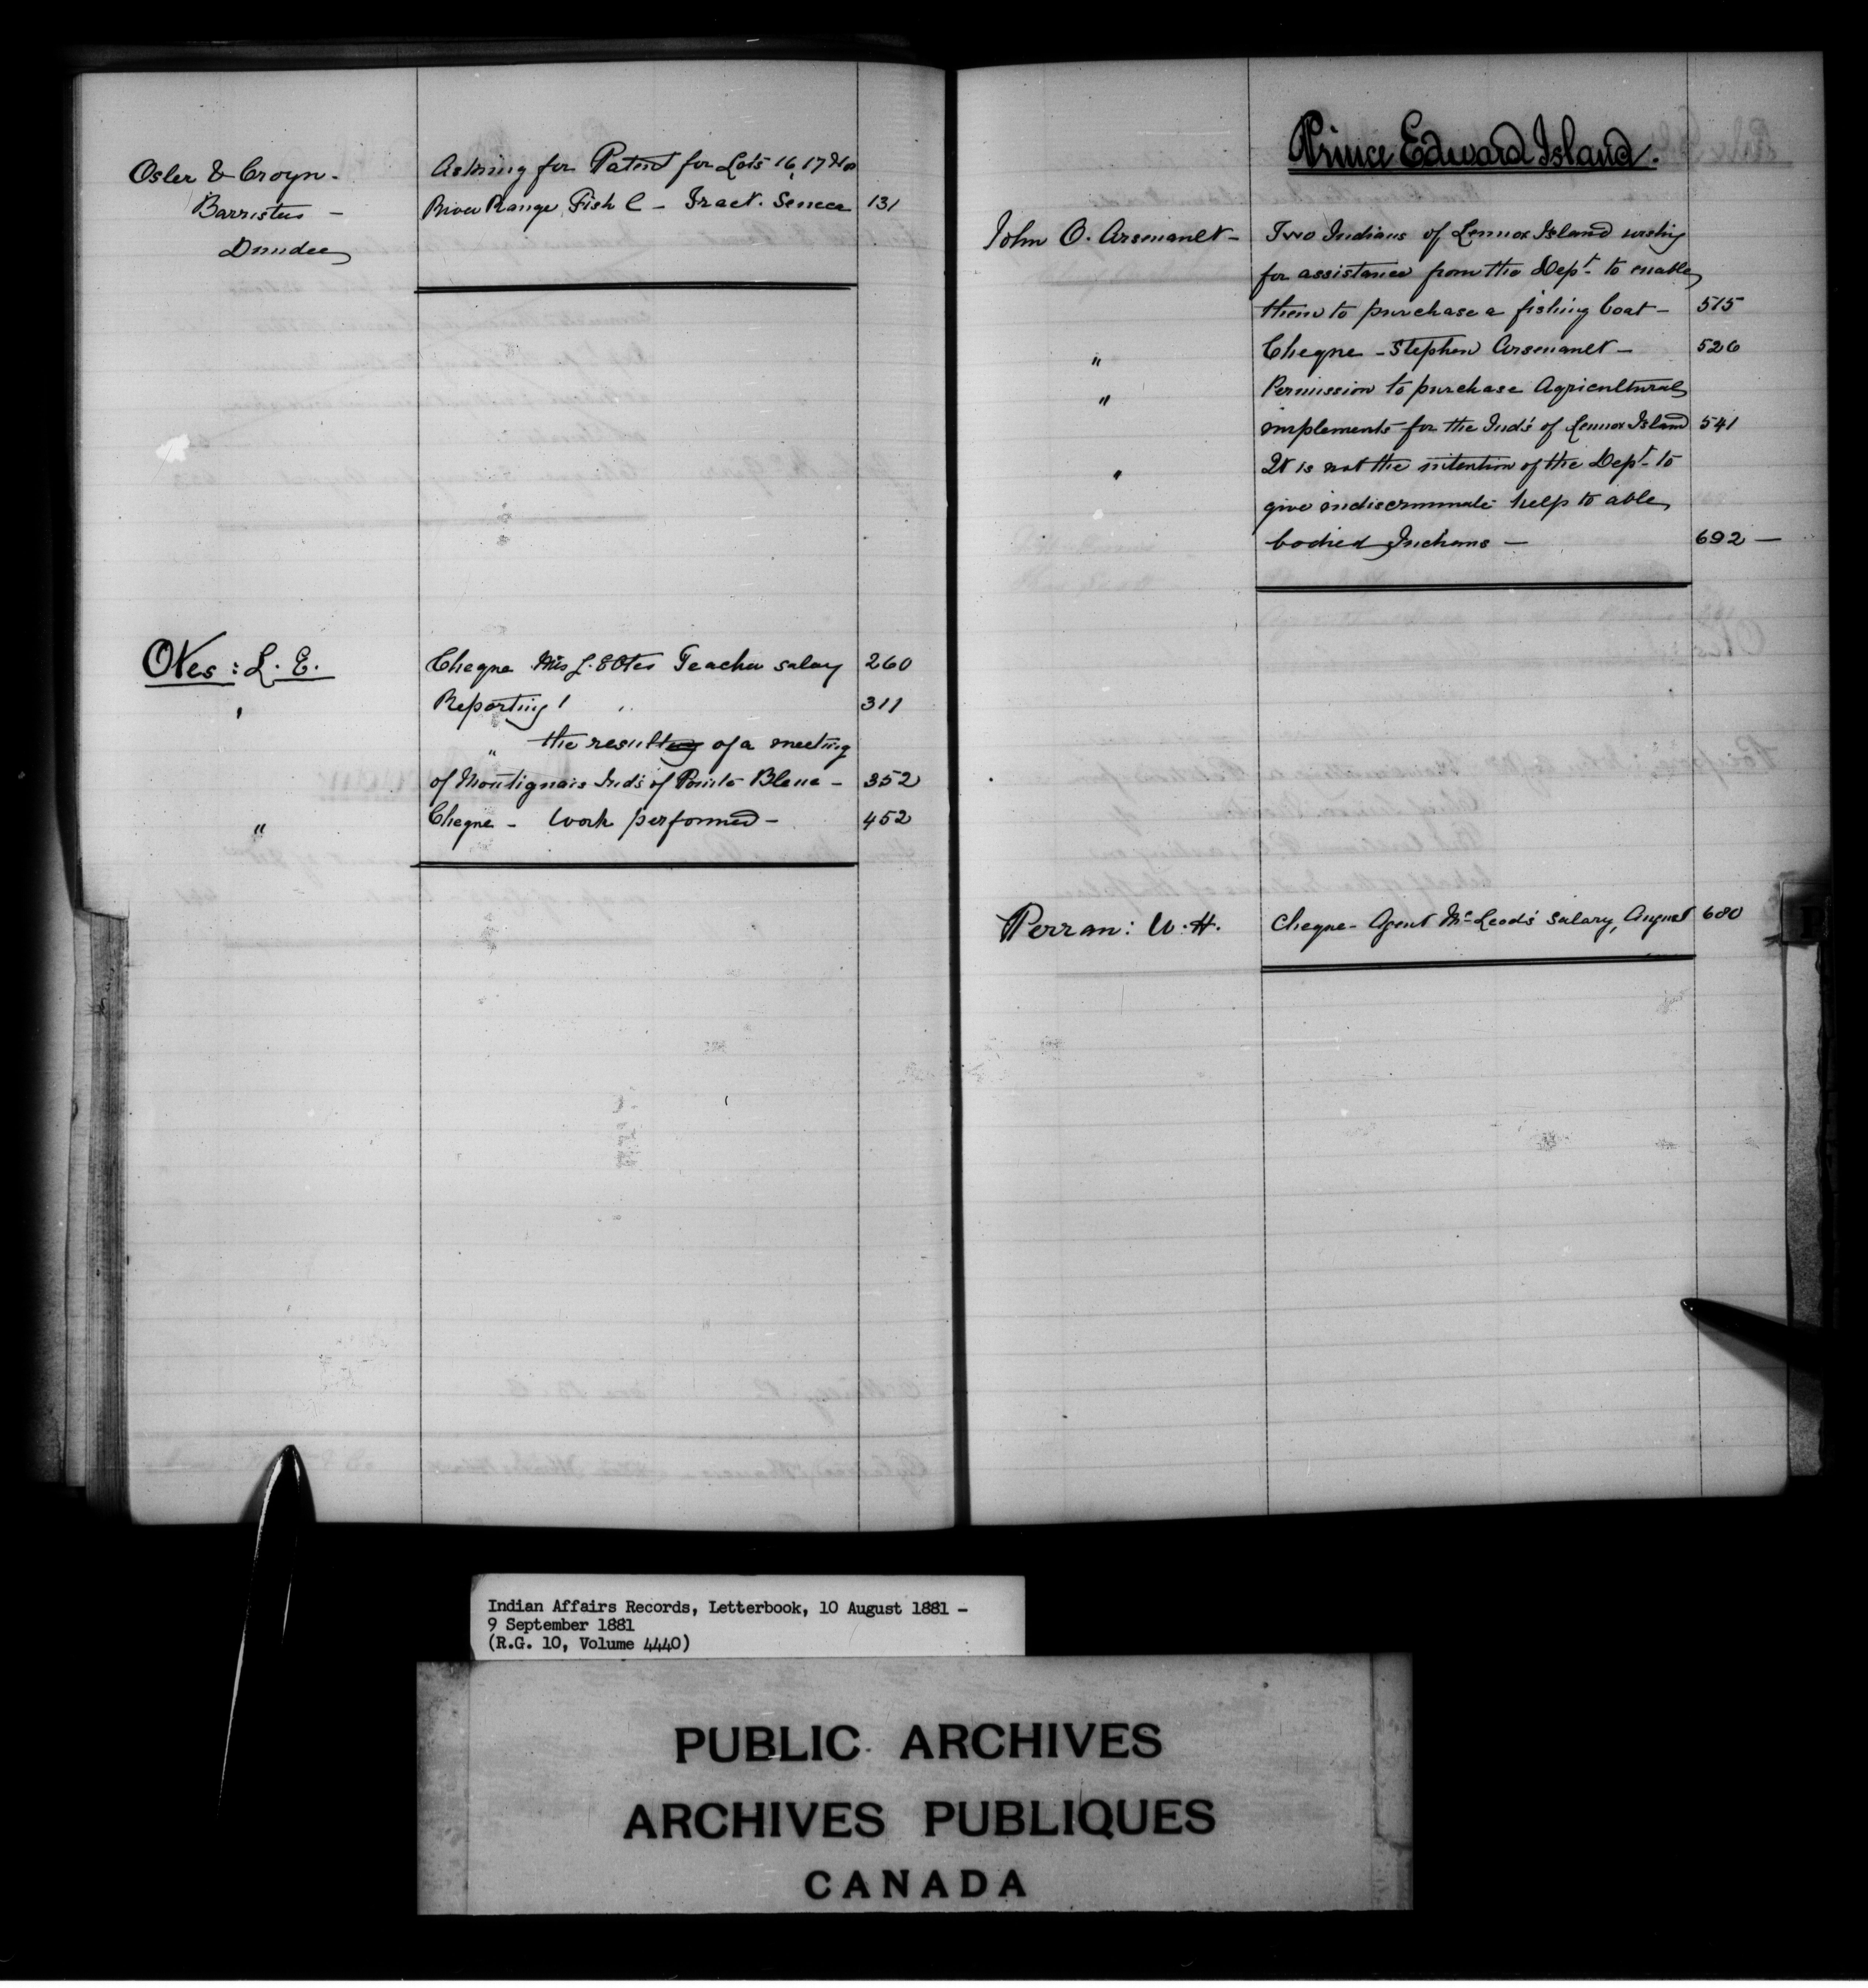 Osler & Croyn - Asking for Patent for Lots 16, 17 No
Barristers - River Range, Fish C - Tract. Seneca 131
Dundee
Otes : L. E. Cheque Miss L. E Otes Teacher salary 260
' Reporting ! " 311
" the result of a meeting
of Montignais Inds of Pointe Bleue - 352
" Cheque - Work performed - 452
Prince Edward Island.
John O. Arsenault - Two Indians of Lennox Island wishing
for assistance from the Dept. to enable
them to purchase a fishing boat - 515
" Cheque - Stephen Arsenault - 526
" Permission to purchase Agricultural
implements for the Inds of Lennox Island 541
" It is not the intention of the Dept. to
give indiscriminate help to able
bodied Indians - 692 -
Perran : W. H. Cheque - Agent McLeod's salary, August 680
P
Indian Affairs Records, Letterbook, 10 August 1881 -
9 September 1881
(R.G. 10, Volume 4440)
PUBLIC ARCHIVES
ARCHIVES PUBLIQUES
CANADA